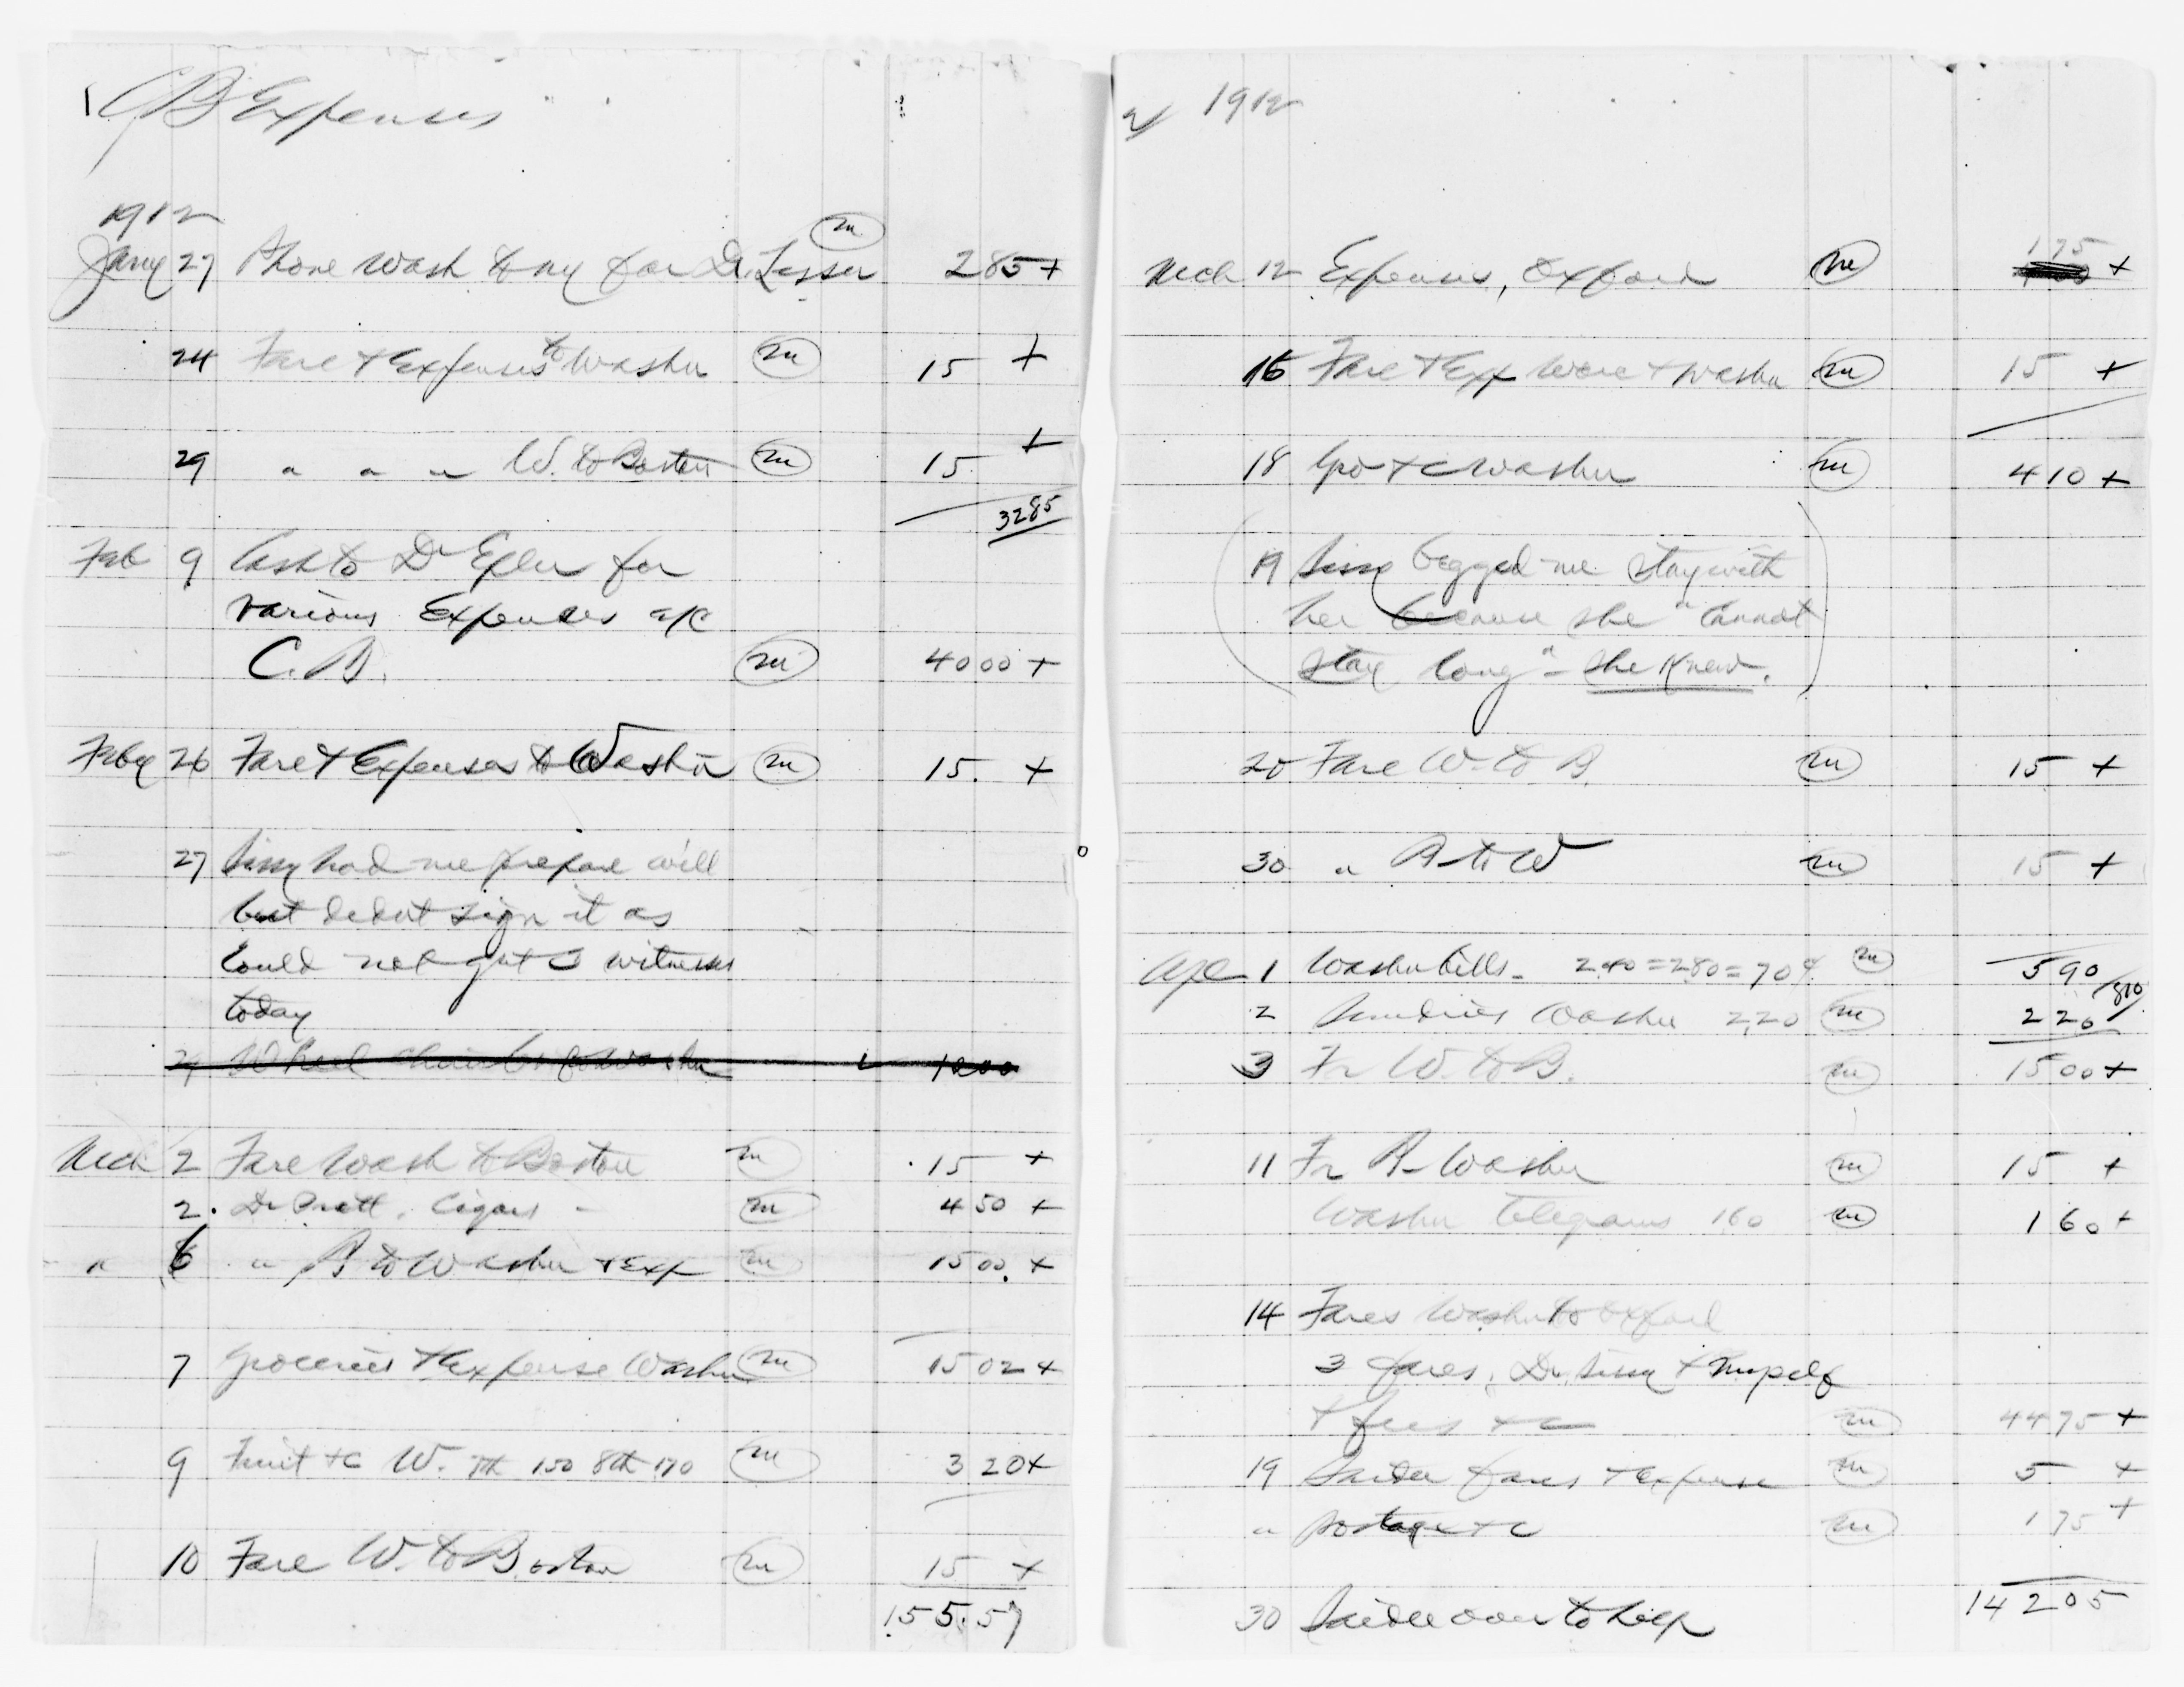 1 CB Expenses
1912
Jany 27 Phone Wash to ny for Dr. Lesser m 285+
24 Fare + Expenses to Washn m 15 +
29 " " " W. to Boston m 15 +
3285
Feb 9 Cash to Dr Epler for
various Expenses a/c
C. B. m 4000+
Feby 26 Fare + Expenses to Washn m 15. +
27 Sissy had me prepare will
but didnt sign it as
could not get 3 witnesses
today
29 Wheel chair Washn 1200
Mch 2 Fare Wash to Boston m 15 +
2. Dr Pratt, Cigars - m 450 +
" 6 " B to Washn + Exp m 1500. +
7 Groceries + Expense Washn m 1502+
9 Fruit +c W. 7th 150 8th 170 m 320+
10 Fare W. to Boston m 15 +
155.57
2/ 1912
Mch 12 Expenses, Oxford m 175 +
16 Fare + Exp Worc + Washn m 15 +
18 Gro +c Washn m 410 +
(19 Sissy begged me stay with
her because she "cannot
stay long" - she knew.)
20 Fare W. to B. m 15 +
30 " B to W m 15 +
Apl 1 Washn bills - 240 = 280 = 70¢ m 590
810
2 Sundries Washn 2.20 m 220
3 Fr W. to B. m 1500+
11 Fr B - Washn m 15 +
Washn telegrams 1.60 m 160+
14 Fares Washn to Oxford
3 fares, Dr. Sissy + myself
+ fees +c m 4475+
19 fares + Expense m 5 +
" postage +c m 175+
14205
30 over to help